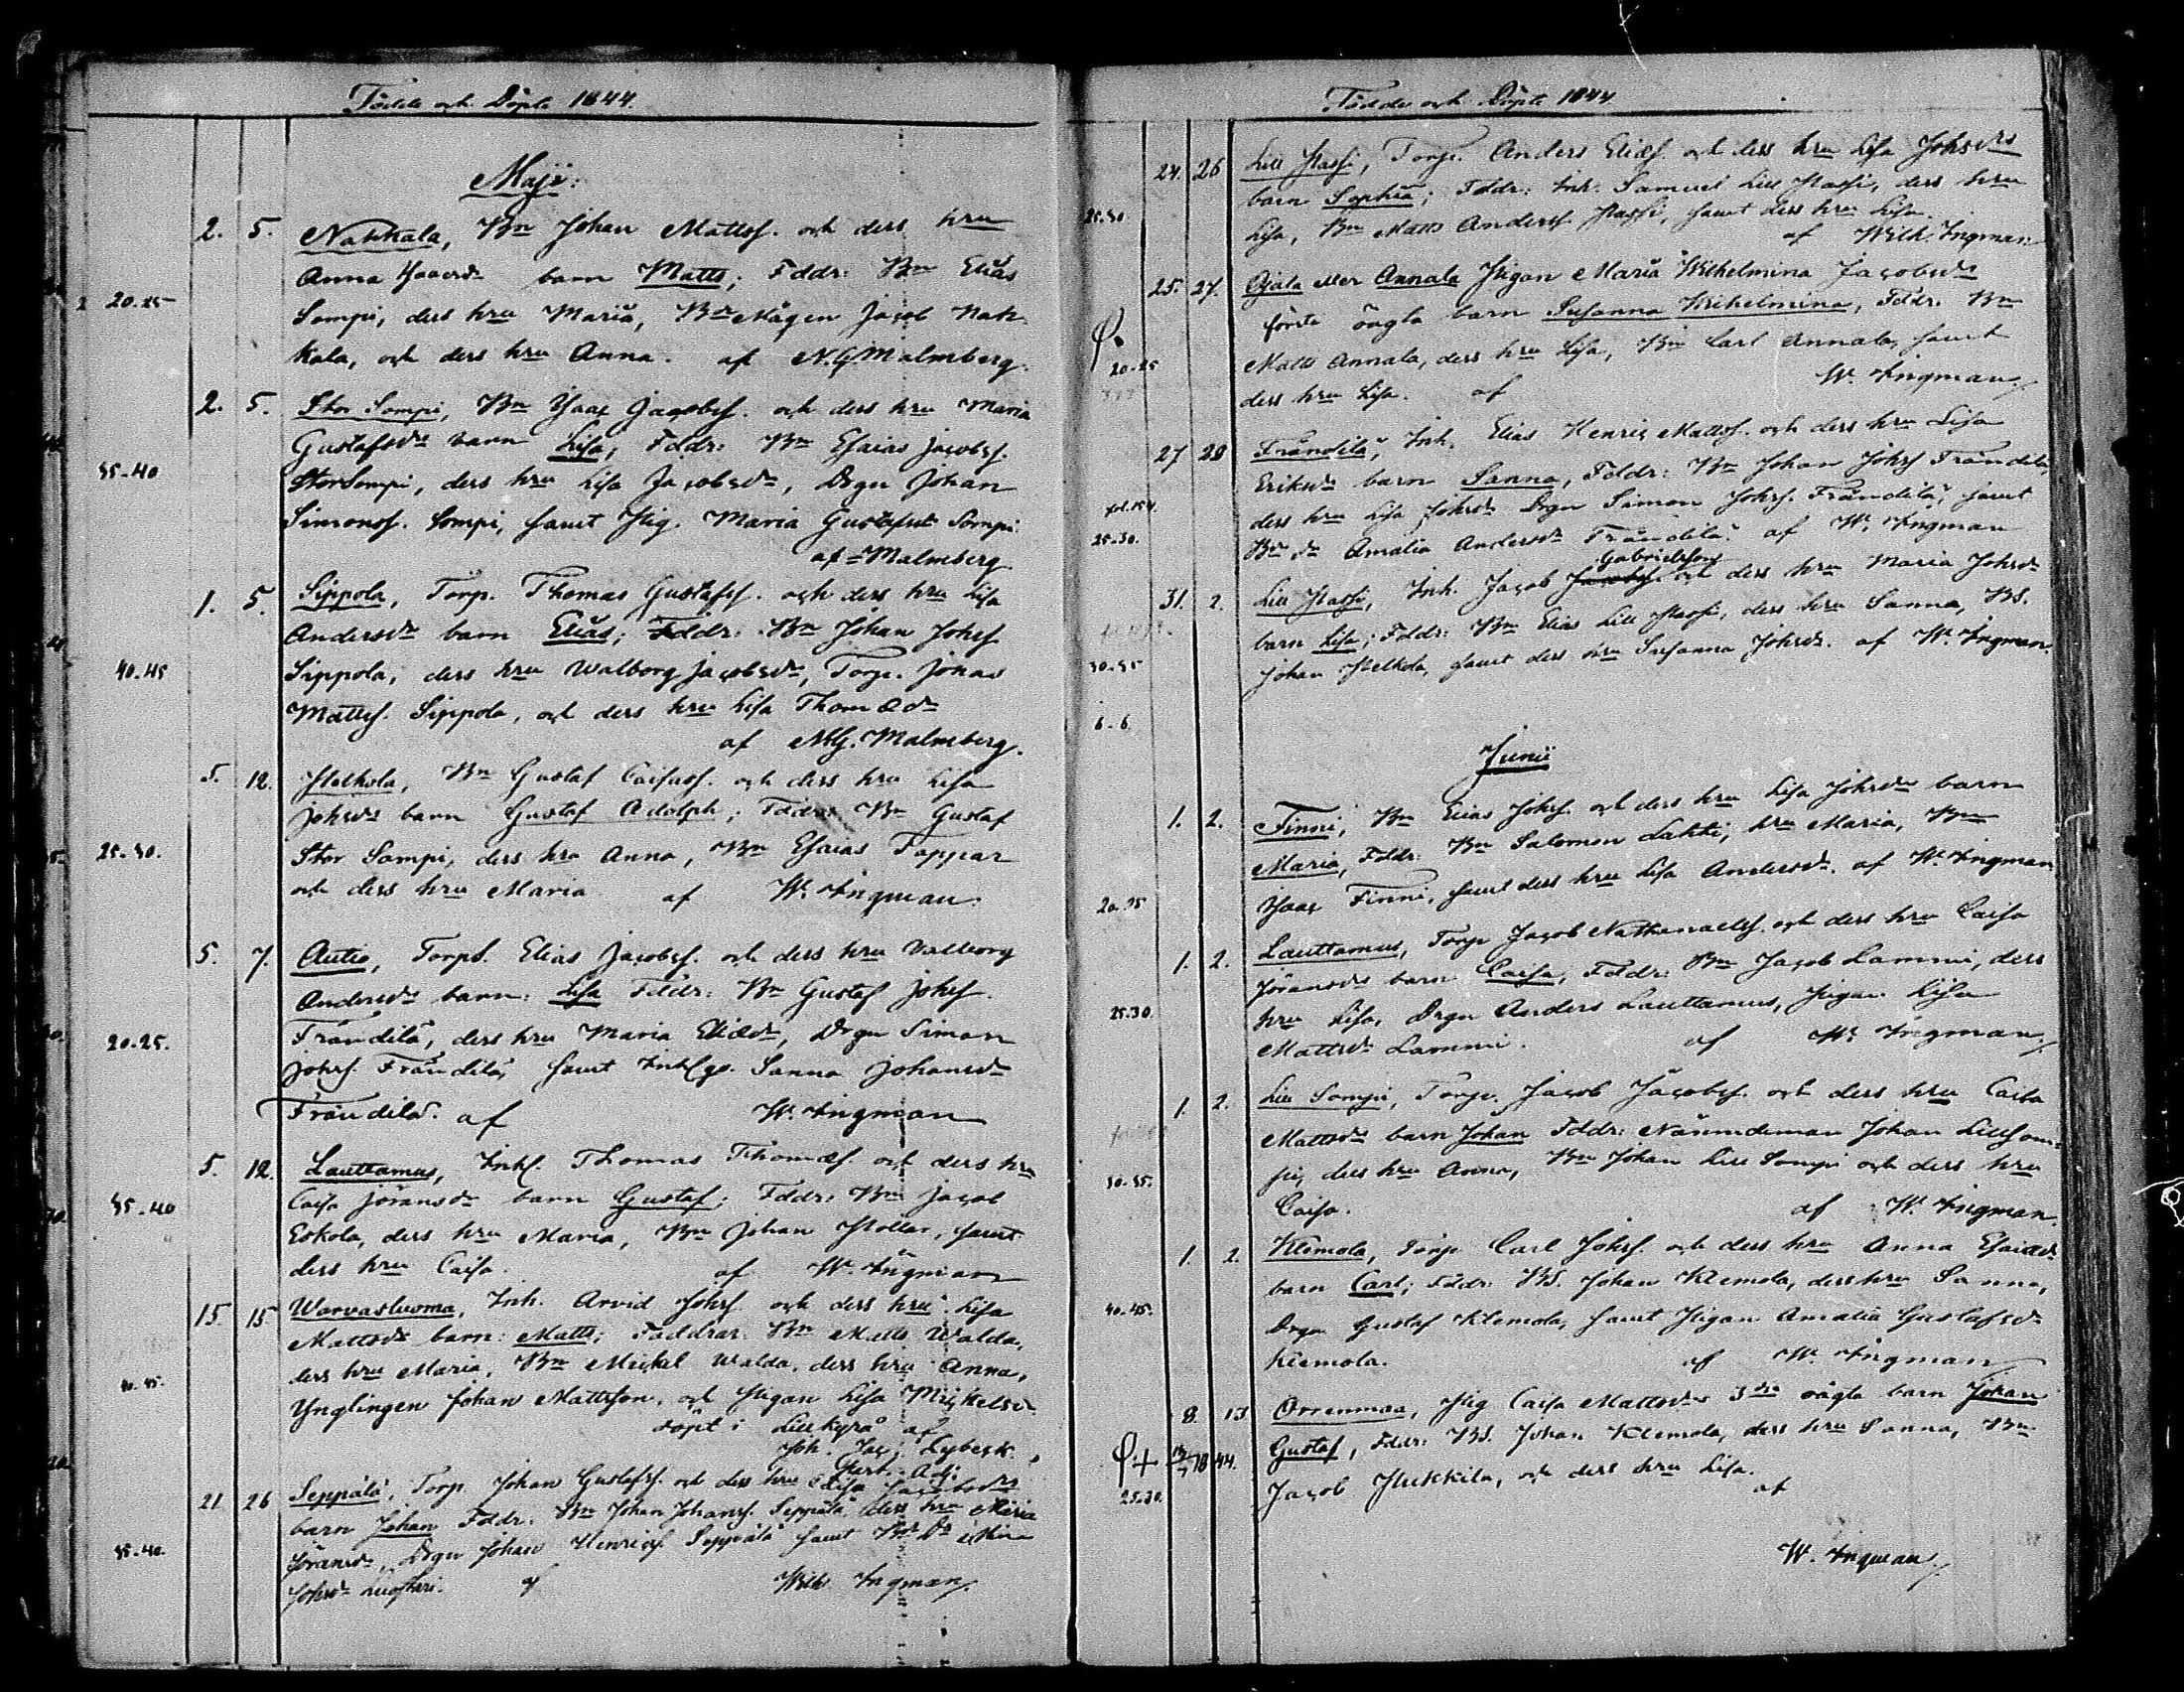 Födde och Döpte 1844.
Maji:
2. 5. Nahkala, Bn Johan Mattss. och dess hru
Anna Isacsdr barn Matts; Fddr: Bn Elias
20-25 Sompi, dess hru Maria, Bn Mågen Jacob Nah-
kala, och dess hru Anna. af N.G. Malmberg.
2. 5. Stor Sompi, Bn Isac Jacobss. och dess hru Maria
Gustafsdr barn Lisa, Fddr: Bn Esaias Jacobss.
35-40 Stor Sompi, dess hru Lisa Jacobsdr, Drgn Johan
Simonss. Sompi, samt Pig. Maria Gustafsdr Sompi
af Malmberg
1. 5. Sippola, Torp. Thomas Gustafss. och dess hru Lisa
Andersdr barn Elias; Fddr: Bn Johan Johss
40-45 Sippola, dess hru Walborg Jacobsdr, Torp. Jonas
Mattss. Sippola, och dess hru Lisa Thomædr
af N.G. Malmberg.
5. 12. Bn Gustaf och dess hru Lisa
Johsdr barn Gustaf Adolph; Fddr: Bn Gustaf
25-30. Stor Sompi, dess hru Anna, Bn Esaias Toppar
och dess hru Maria af W. Ingman.
5. 7. Autio, Torps. Elias Jacobss. och dess hru Valborg
Andersdr barn: Lisa Fddr: Bn Gustaf Johss.
20-25. Frändilä, dess hru Maria Eliædr, Drgn Simon
Johss. Frändilä, samt Sanna Johansdr
Frändilä. af W. Ingman
5. 12. Lauttamus, Inhs. Thomas Thomæs. och dess hru
Caisa Jöransdr barn Gustaf; Fddr: Bn Jacob
35-40 Eskola, dess hru Maria, Bn Johan samt
dess hru Caisa. af W. Ingman
15. 15 Warvasluoma, Inh. Arvid Johss. och dess hru Lisa
Mattsdr barn: Matts; Faddrar: Bn Matts Walda,
dess hru Maria, Bn Mickel Walda, dess hru Anna,
40-45. Ynglingen Johan Mattsson, och Pigan Lisa Mickelsdr
döpt i Lillkyrå af
Joh. Jac: Lybeck.
Adj.
21. 26 Seppälä, Torp. Johan Gustafss. och dess hru Lisa Jacobsdr
barn Johan Fddr: Bn Johan Johanss. Seppälä, dess hru Maria
35-40. Jöransdr, Drgn Johan Henricss Seppälä samt
Johsdr af Wilh. Ingman.
Födde och Döpte 1844.
24. 26 Lill Torp. Anders Eliæs. och dess hru Lisa Johsdr
barn Sophia; Fddr: Inh. Samuel Lill dess hru
25-30 Lisa, Bn Matts Anderss. samt dess hru Lisa.
af Wilh. Ingman
25. 27. Ojala eller Annala Pigan Maria Wilhelmina Jacobsdr
första oägta barn Susanna Wilhelmina, Fddr. Bn
20-25 Matts Annala, dess hru Lisa, Bn Carl Annala, samt
dess hru Lisa. af W. Ingman
27 28 Frändilä, Inh. Elias Henric Mattss. och dess hru Lisa
Eriksdr barn Sanna, Fddr: Bn Johan Johss Frändilä,
fol. 154. dess hru Lisa Johsdr Drgn Simon Johss. Frändilä, samt
25-30. Amalia Andersdr Frändilä. af W. Ingman
Gabrielsson
31. 2. Lill Inh. Jacob Jacobss. och dess hru Maria Johsdr
barn Lisa; Fddr: Bn Elias Lill dess hru Sanna, Bs.
30-35 Johan samt dess hru Susanna Johsdr. af W. Ingman.
6-6.
Junii
1. 2. Finni, Bn Elias Johss. och dess hru Lisa Johsdr barn
Maria, Fddr: Bn Salomon Lahti, hru Maria, Bn
20-25 Isac Finni, samt dess hru Lisa Andersdr. af W. Ingman
1. 2. Lauttamus, Torp Jacob Nathanaelss. och dess hru Caisa
Jöransdr barn Caisa, Fddr: Bn Jacob Lammi, dess
25.30. hru Lisa, Drgn Anders Lauttamus, Pigan Lisa
Mattsdr Lammi. af W. Ingman
1. 2. Lill Sompi, Torp. Jacob Jacobss. och dess hru Caisa
Mattsdr barn Johan Fddr: Nämndeman Johan Lillsom-
30-35. pi, dess hru Anna, Bn Johan Lill Sompi och dess hru
Caisa. af W. Ingman.
1. 2. Klemola, Torp Carl Johss. och dess hru Anna Esaiædr
barn Carl; Fddr: Bs. Johan Klemola, dess hru Sanna,
40-45. Drgn Gustaf Klemola, samt Pigan Amalia Gustafsdr
Klemola. af W. Ingman
8. 13. Orrenmaa, Pig Caisa Mattsdrs 3dje oägta barn Johan
Gustaf, Fddr: Bs. Johan Klemola, dess hru Sanna, Bn
25.30. Jacob och dess hru Lisa.
af
W. Ingman